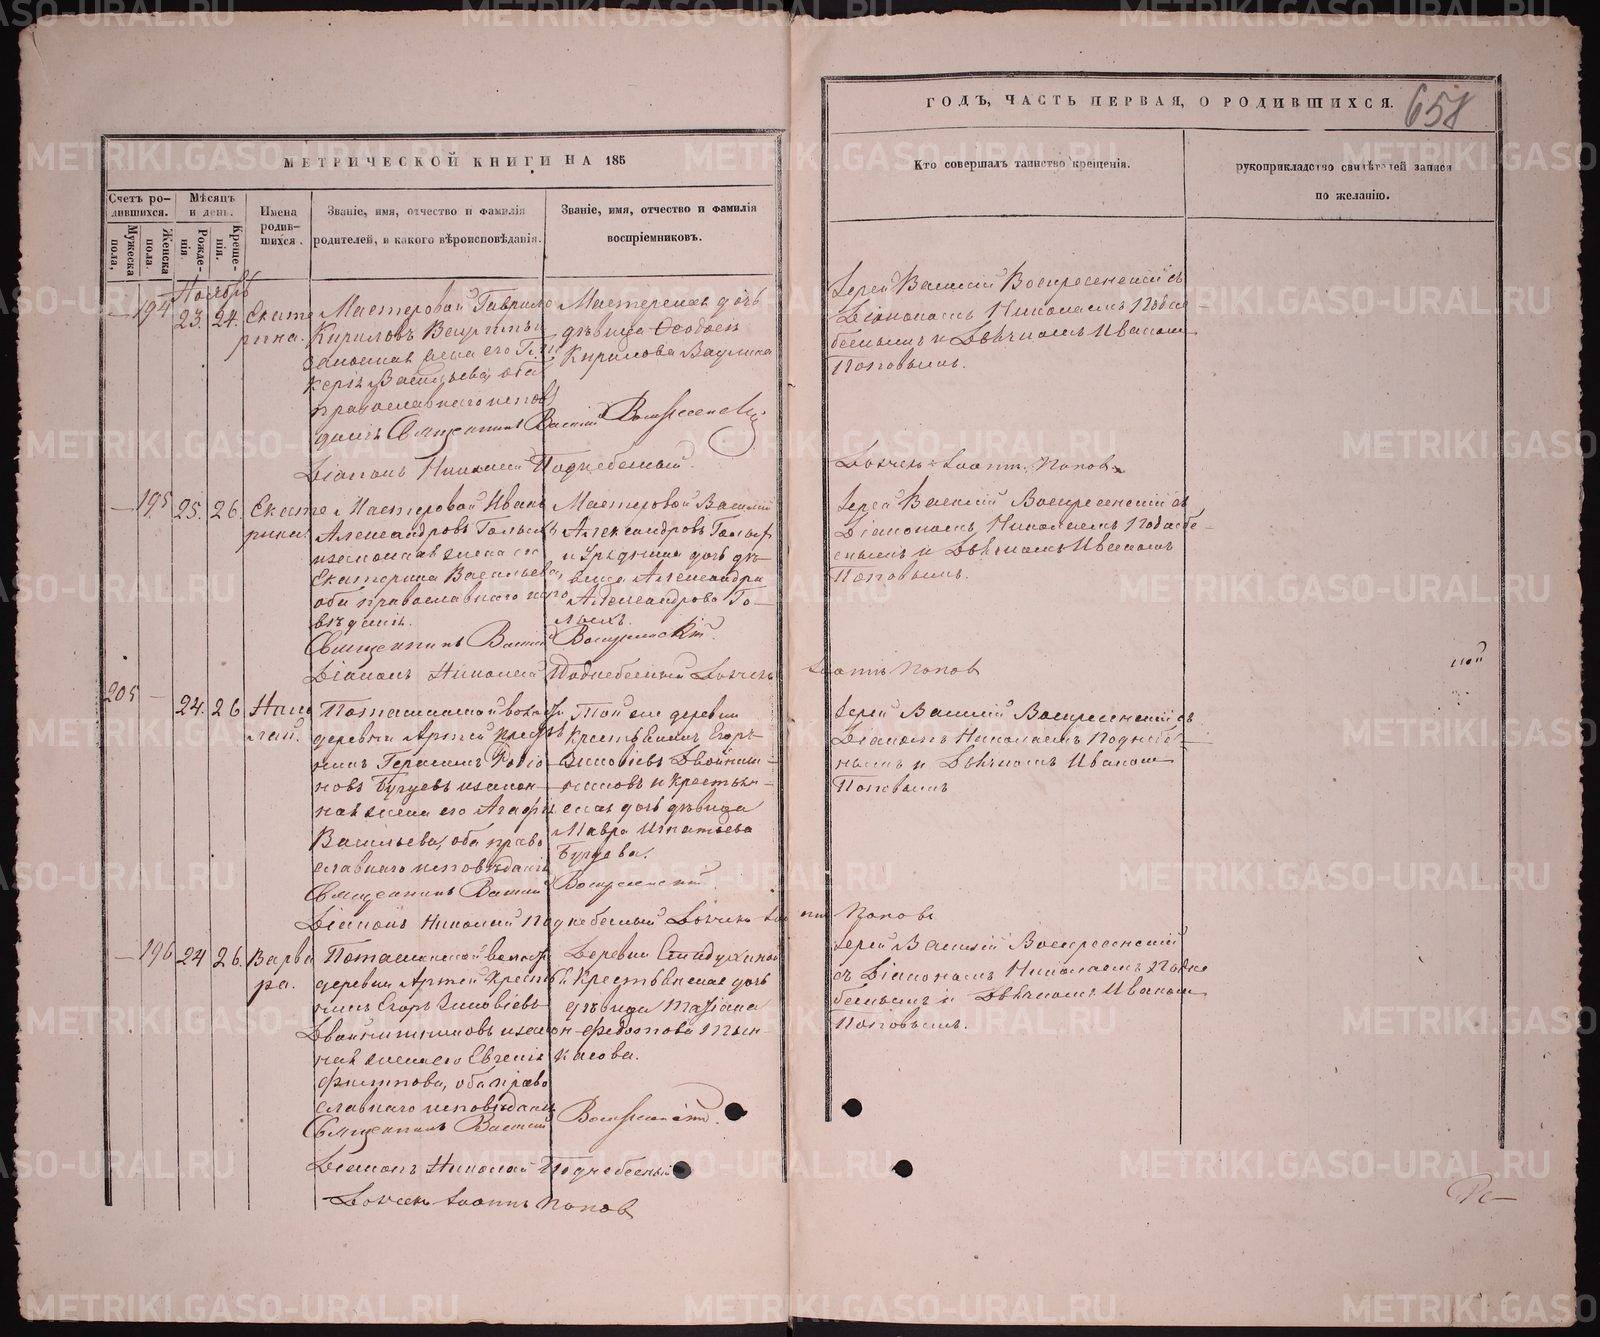 МЕТРИЧЕСКОЙ КНИГИ НА 185
ГОДЪ, ЧАСТЬ ПЕРВАЯ, О РОДИВШИХСЯ.
658
Счетъ родившихся.
Мужеска пола.
Женска пола.
Мѣсяцъ и день.
Рожденія.
Крещенія.
Имена родившихся.
Званіе, имя, отчество и фамилія
родителей, и какого вѣроисповѣданія.
Званіе, имя, отчество и фамилія
воспріемниковъ.
Кто совершалъ таинство крещенія.
рукоприкладство свидѣтелей записи
по желанію.
Ноябрь
194 23. 24. Екатерина.
Мастеровой Гаврило
Кириловъ
законная жена его
Васильева, оба
православнаго исповѣ
данія Священникъ Василій Воскресенскій
Діаконъ Николай Поднебесный.
дѣвица
Кирилова
Іерей Василій Воскресенскій съ
Діакономъ Николаемъ Поднебеснымъ
и Дьячкомъ Иваномъ
Поповымъ.
Дьячекъ Іоаннъ Поповъ
195. 25. 26. Екатерина.
Мастеровой Иванъ
Александровъ
и законная жена его
Екатерина Васильева,
оба православнаго испо
вѣданія.
Священникъ Василій Воскресенскій
Діаконъ Николай Поднебесный Дьячекъ Іоаннъ Поповъ
Мастеровой Василій
Александровъ
дочь дѣвица Александра
Александрова
Іерей Василій Воскресенскій съ
Діакономъ Николаемъ Поднебеснымъ
и Дьячкомъ Иваномъ
Поповымъ.
205 24. 26 Николай.
Поташкинской волости
деревни Артей крестья
нинъ Герасимъ
и закон
ная жена его Агафья
Васильева, оба право
славнаго исповѣданія
Священникъ Василій Воскресенскій.
Діаконъ Николай Поднебесный Дьячекъ Іоаннъ Поповъ
Той же деревни
Крестьянинъ Егоръ
Зиновіевъ Двойнишниковъ
и Крестьянская
дочь дѣвица
Мавра Игнатьева
Бугуева.
Іерей Василій Воскресенскій съ
Діакономъ Николаемъ Поднебеснымъ
и Дьячкомъ Иваномъ
Поповымъ
196 24 26. Варвара.
Поташкинской волости
деревни Артей Крестья
нинъ Егоръ Зиновіевъ
Двойнишниковъ и закон
ная жена его Евгенія
Филиппова, оба право
славнаго исповѣданія
Священникъ Василій Воскресенскій.
Діаконъ Николай Поднебесный
Дьячекъ Іоаннъ Поповъ
Деревни
Крестьянская дочь
дѣвица Татіана
Федотова
Іерей Василій Воскресенскій
съ Діакономъ Николаемъ Подне
беснымъ и Дьячкомъ Иваномъ
Поповымъ.
METRIKI.GASO-URAL.RU